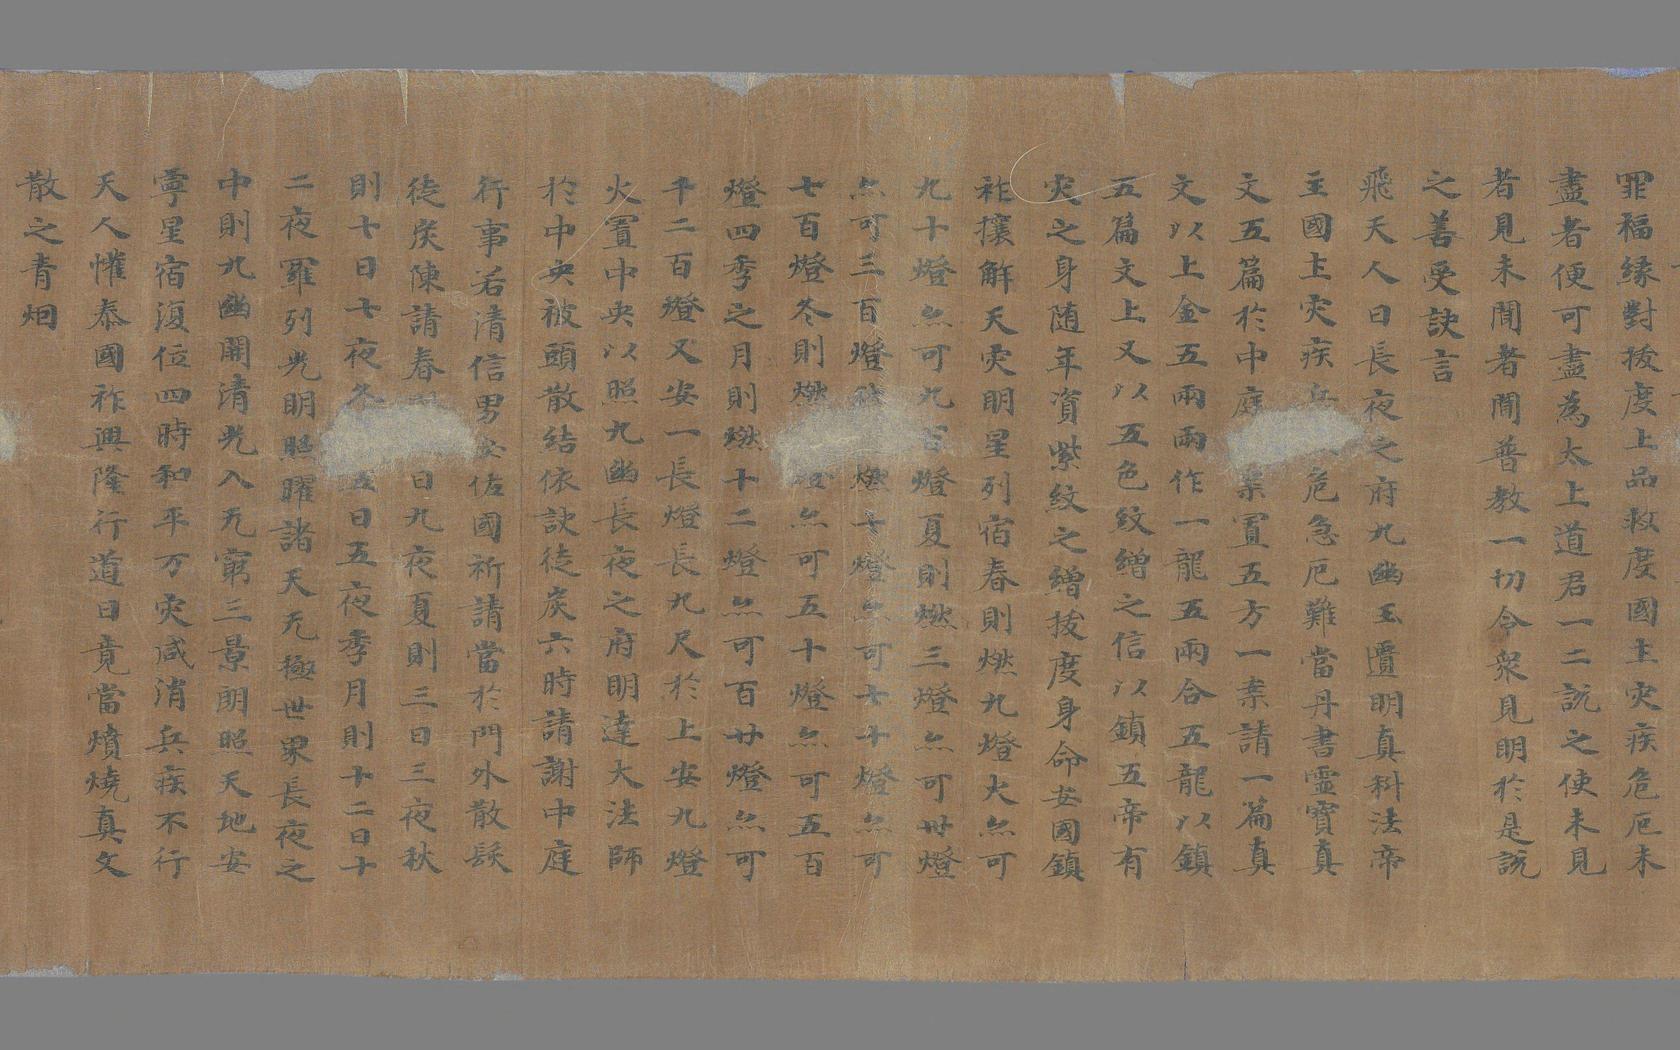 罪福縁對拔度上品救度國主灾疾危厄未
盡者便可盡為太上道君一二說之使未見
者見未聞者聞普教一切令衆見明於是說
之善受訣言
飛天人曰長夜之府九幽玉匱明真科法帝
主國主灾疾兵危急厄難當丹書靈寶真
文五篇於中庭案置五方一案請一篇真
文以上金五兩兩作一龍五兩合五龍以鎮
五篇文上又以五色紋繒之信以鎮五帝有
灾之身随年資紫紋之繒拔度身命安國鎮
祚攘解天灾明星列宿春則燃九燈火亦可
九十燈亦可九百燈夏則燃三燈亦可卅燈
亦可三百燈秋燃七燈亦可七十燈亦可
七百燈冬則燃燈亦可五十燈亦可五百
燈四季之月則燃十二燈亦可百廿燈亦可
千二百燈又安一長燈長九尺於上安九燈
火置中央以照九幽長夜之府明達大法師
於中央被頭散結依訣徒炭六時請謝中庭
行事若清信男女佐國祈請當於門外散髮
徒炭陳請春日九夜夏則三日三夜秋
則十日七夜冬五日五夜季月則十二日十
二夜羅列光明照曜諸天无極世界長夜之
中則九幽開清光入无窮三景朗照天地安
寧星宿復位四時和平万灾咸消兵疾不行
天人懽泰國祚興隆行道日竟當燌燒真文
散之青烟